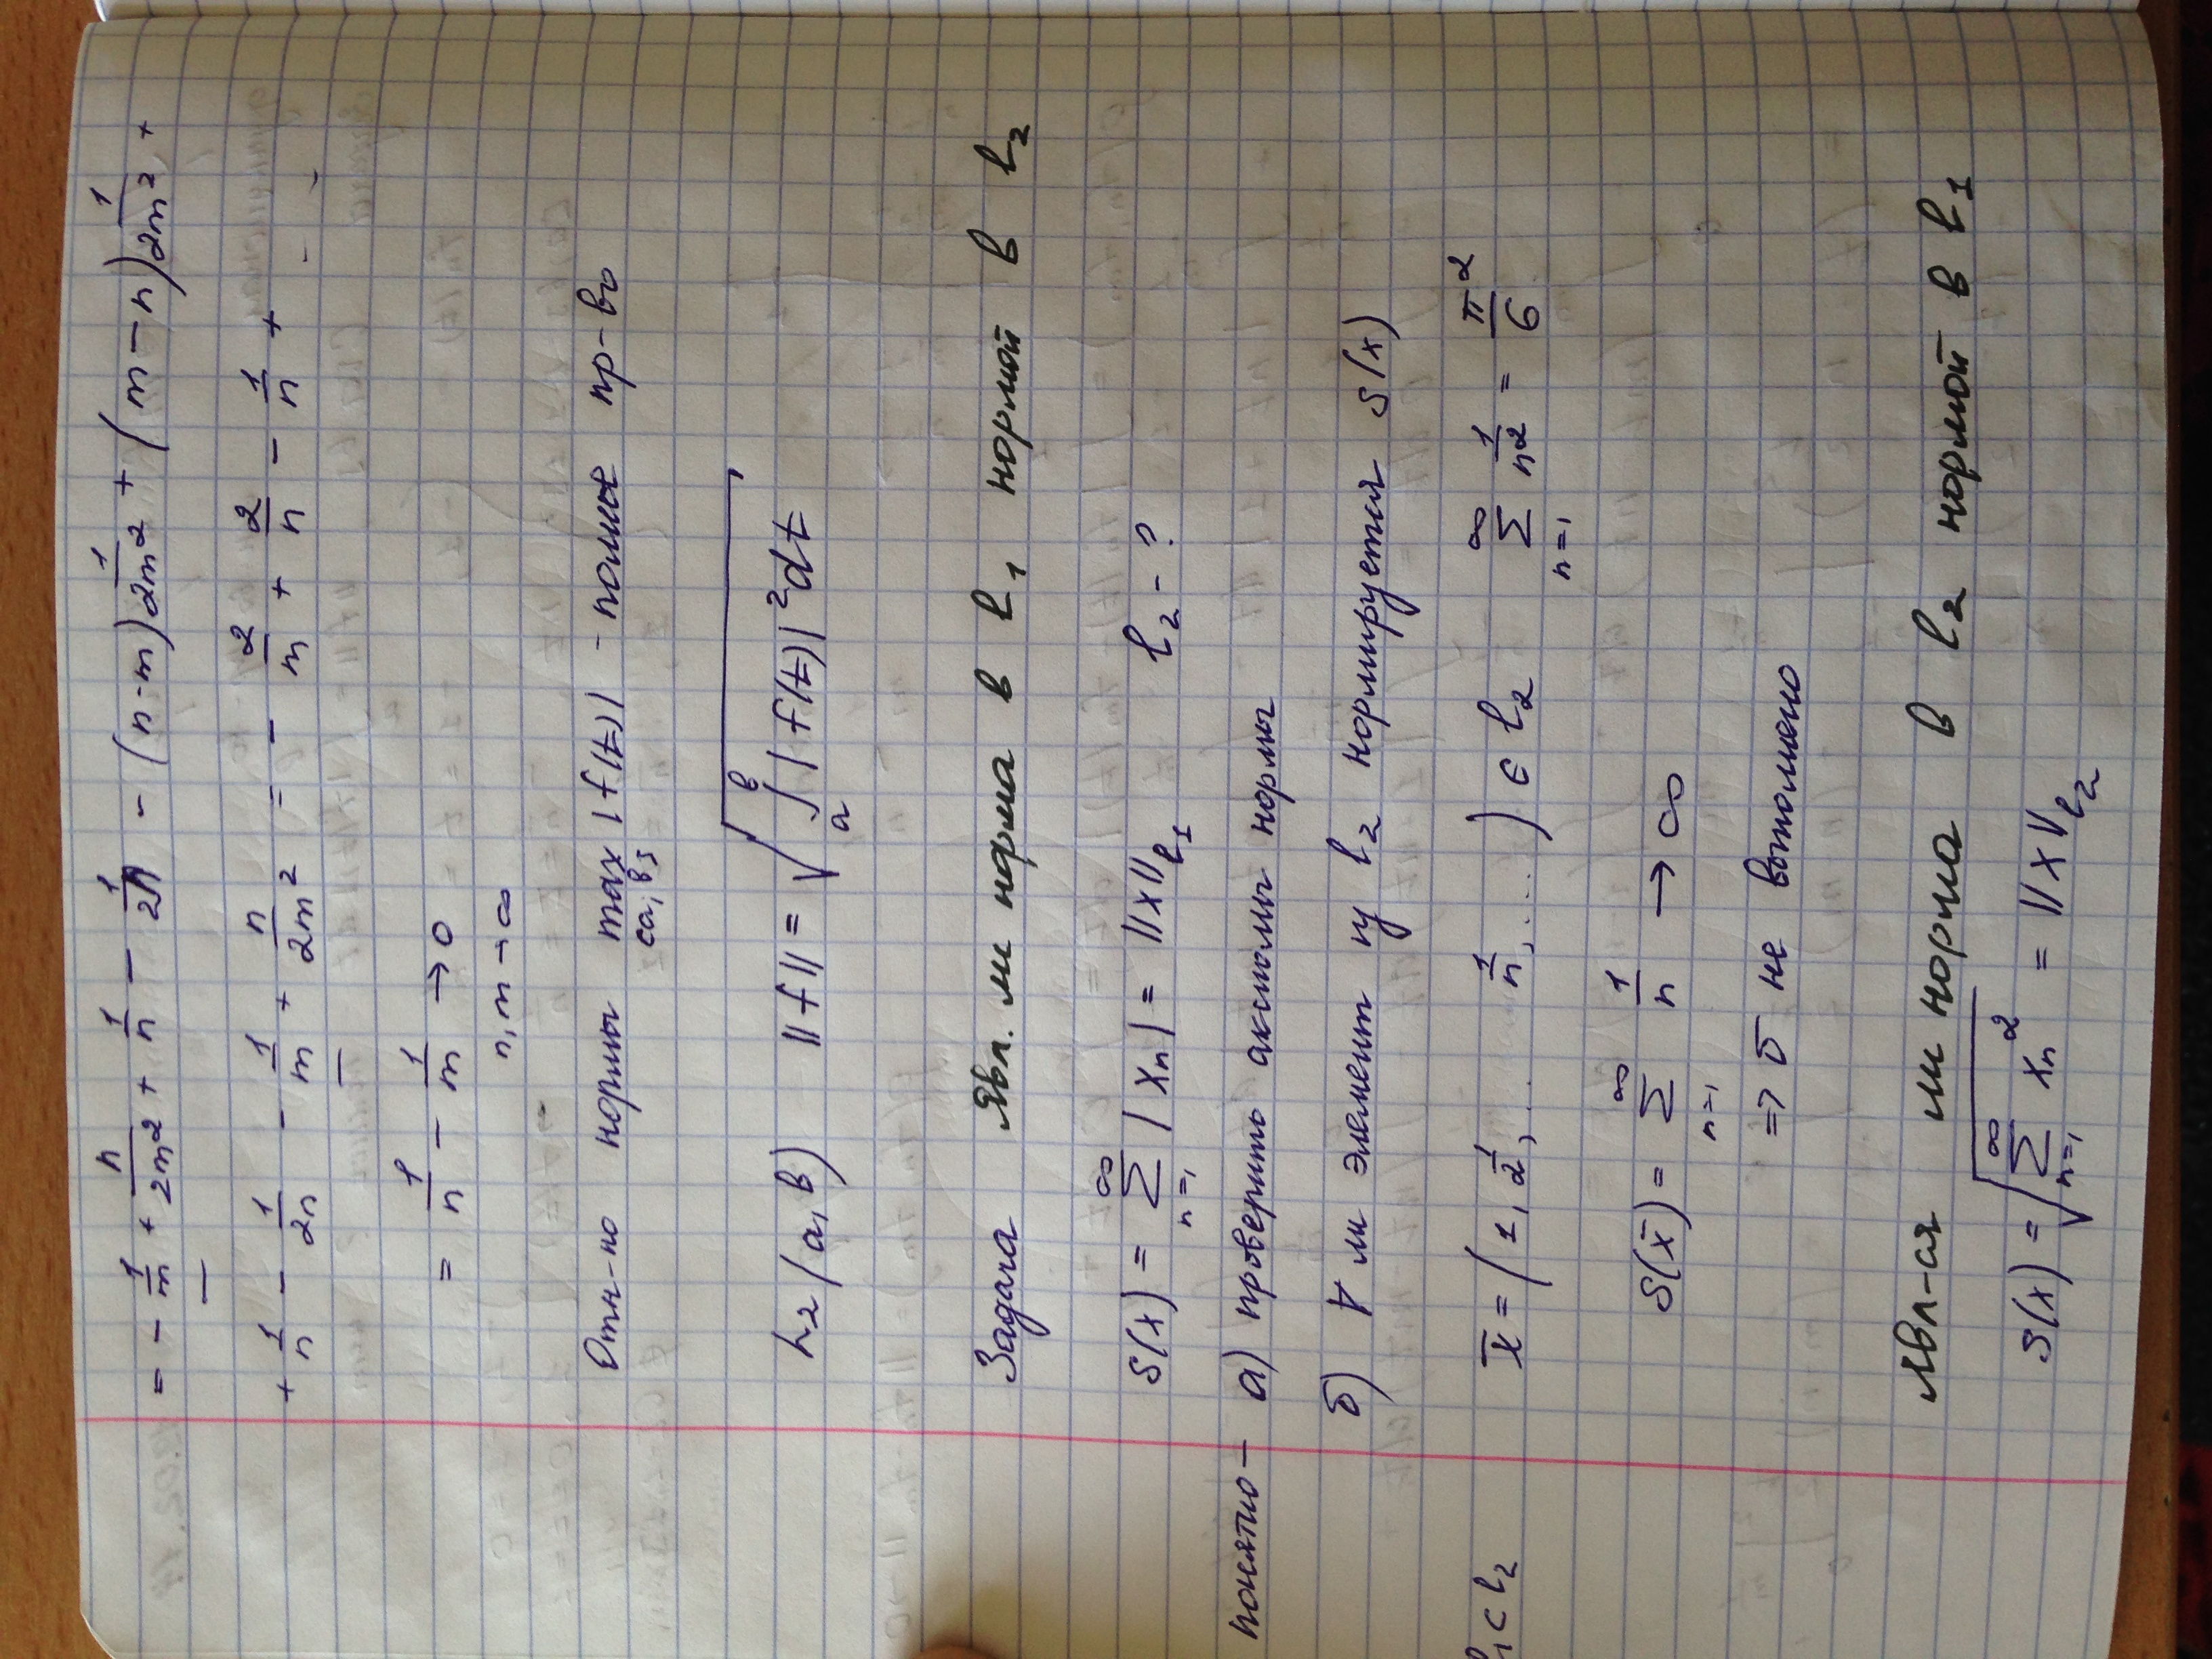 = - 1/m + n/2m² + 1/n - 1/2n - (n-m) 1/2m² + (m-n) 1/2m² +
+ 1/n - 1/2n - 1/m + n/2m² = - 2/m + 2/n - 1/n +
= 1/n - 1/m → 0
n, m → ∞
Отн-но нормы max |f(t)| - полное пр-во
[a, b]
L₂(a, b) ||f|| = √∫ₐᵇ |f(t)|² dt
Задача Явл. ли норма в l₁ нормой в l₂
S(x) = ∑ₙ₌₁^∞ |xₙ| = ||x||l₁ l₂ - ?
понятно - а) проверить аксиомы нормы
б) ∀ ли элемент из l₂ нормируется S(x)
l₁ ⊂ l₂ x̄ = (1, 1/2, ... 1/n, ....) ∈ l₂ ∑ₙ₌₁^∞ 1/n² = π²/6
S(x̄) = ∑ₙ₌₁^∞ 1/n → ∞
=> б не выполнено
Явл-ая ли норма в l₂ нормой в l₁
S(x) = √∑ₙ₌₁^∞ xₙ² = ||x||l₂